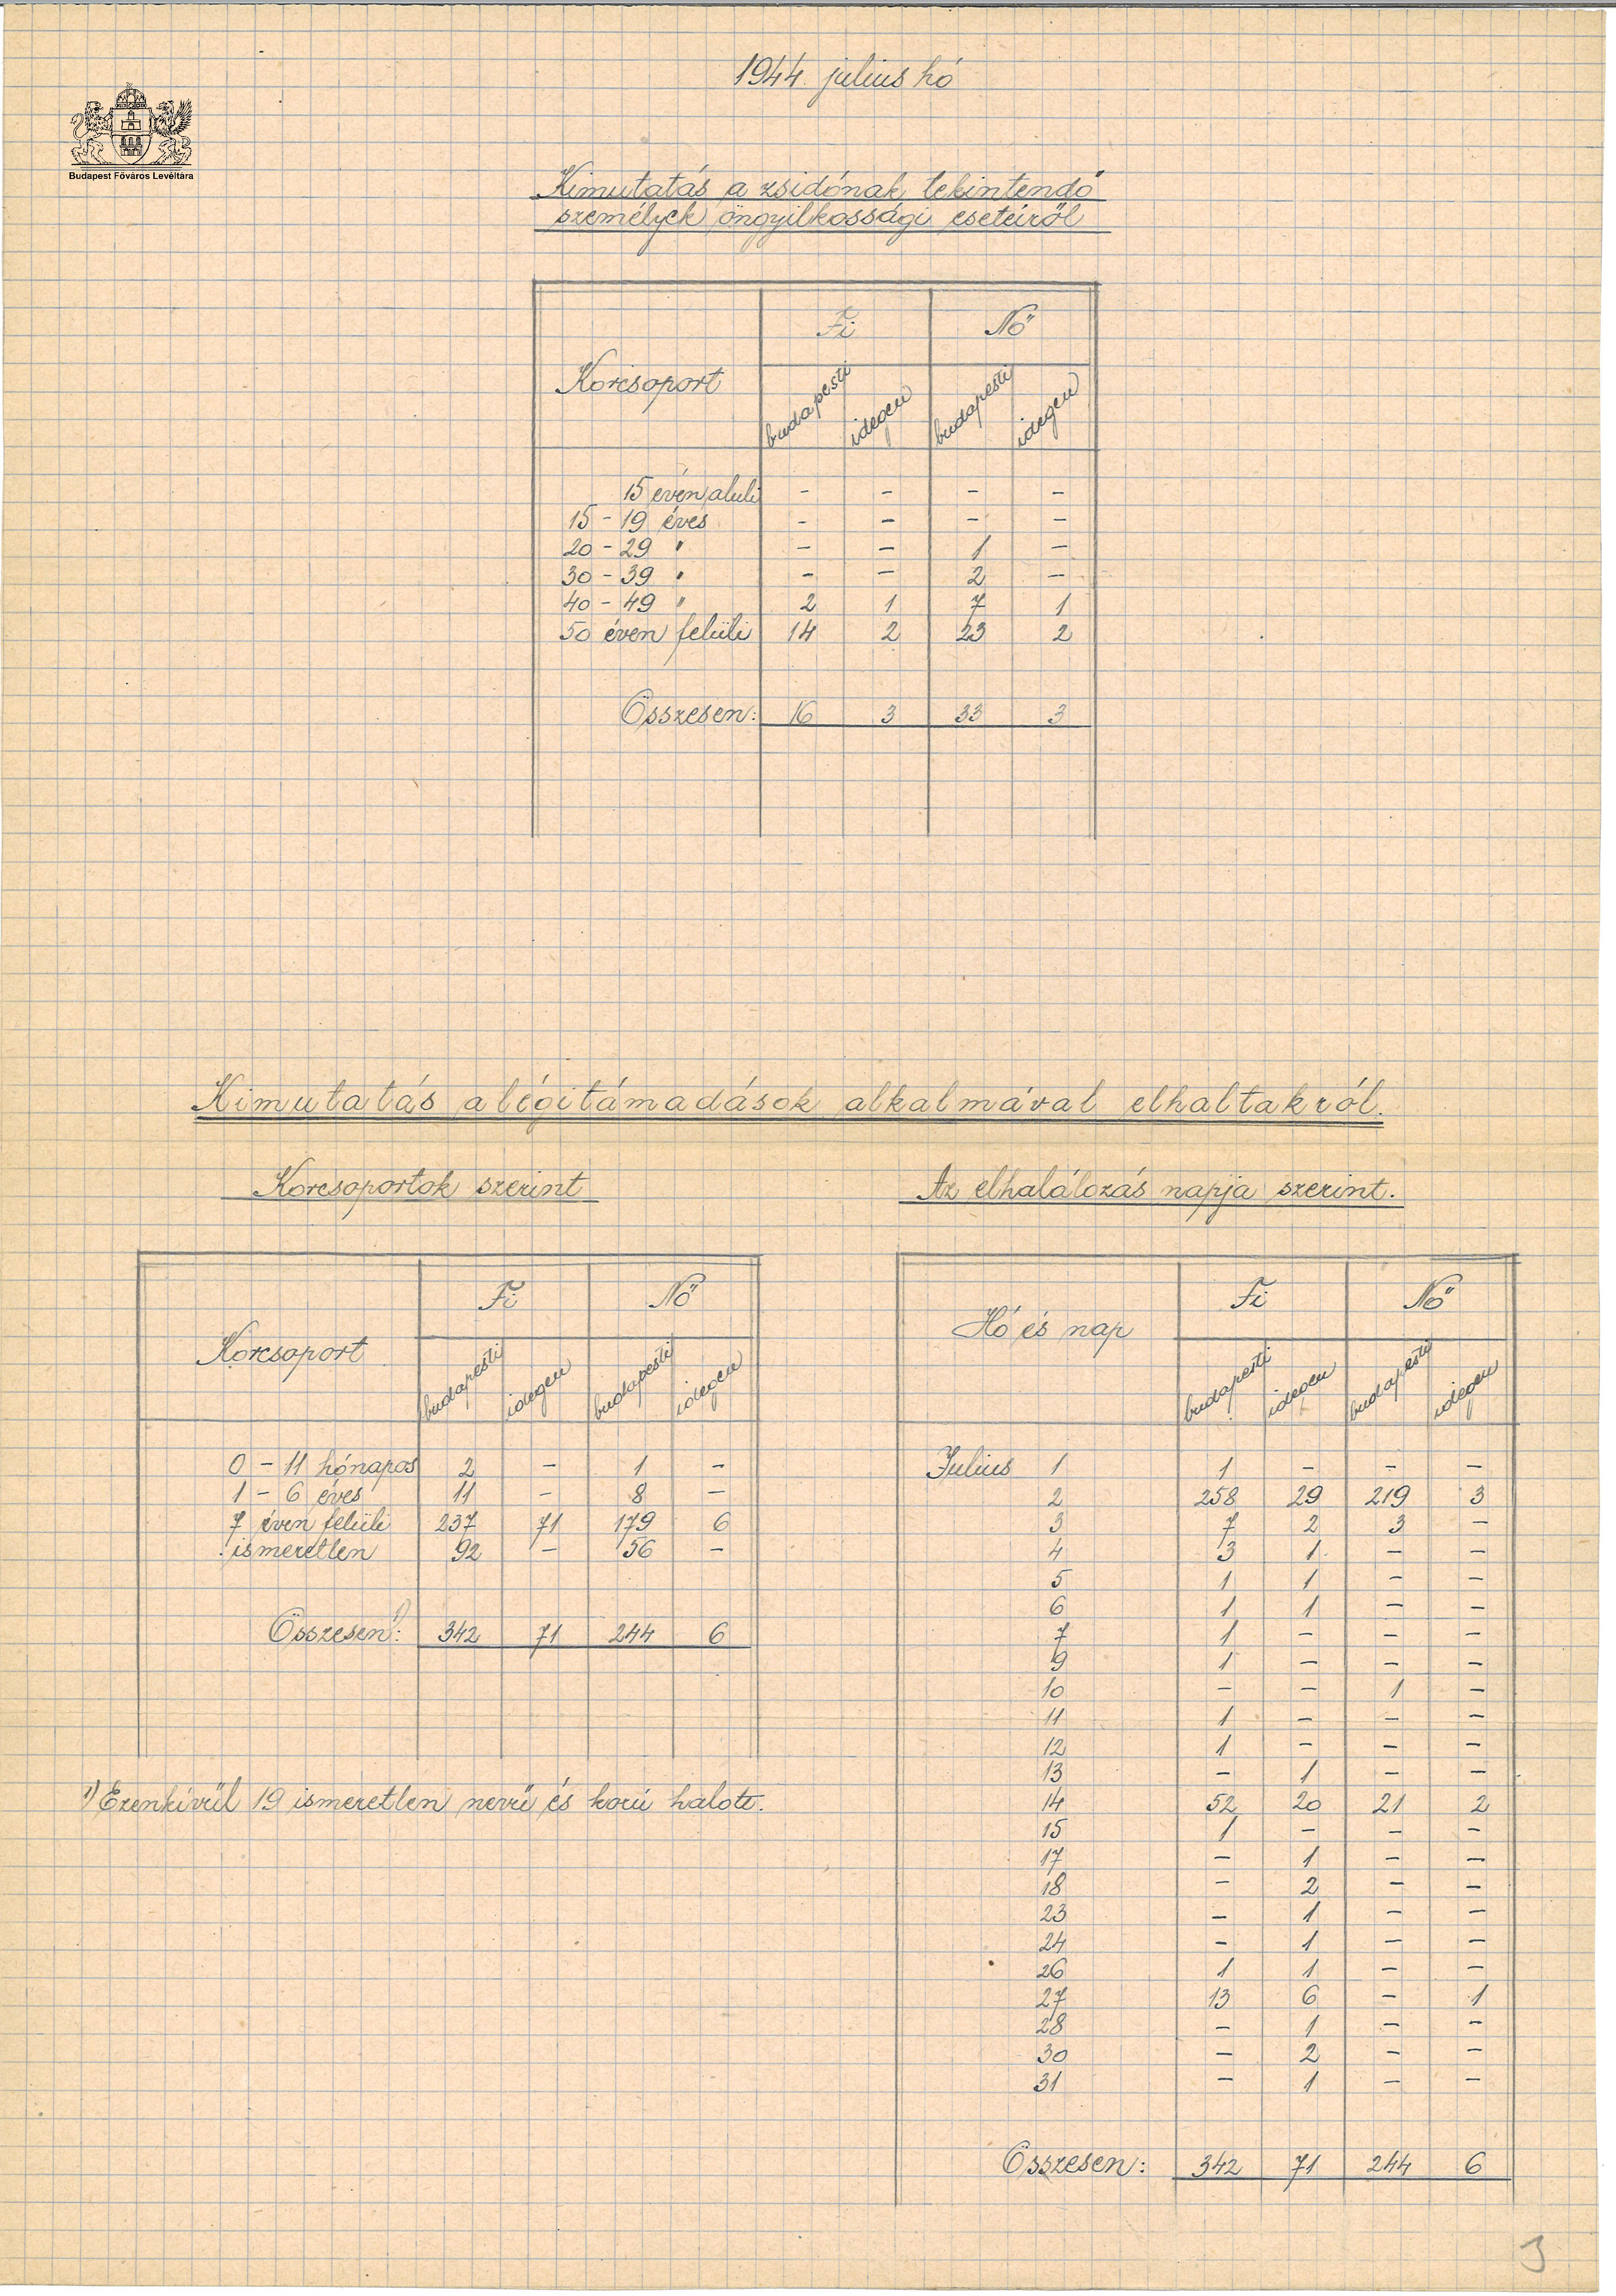 1944. julius hó
Budapest Főváros Levéltára
Kimutatás a zsidónak tekintendő
személyek öngyilkossági eseteiről
Korcsoport Fi Nő
budapesti idegen budapesti idegen
15 éven aluli - - - -
15 - 19 éves - - - -
20 - 29 " - - 1 -
30 - 39 " - - 2 -
40 - 49 " 2 1 7 1
50 éven felüli 14 2 23 2
Összesen: 16 3 33 3
Kimutatás a légitámadások alkalmával elhaltakról.
Korcsoportok szerint
Korcsoport Fi Nő
budapesti idegen budapesti idegen
0 - 11 hónapos 2 - 1 -
1 - 6 éves 11 - 8 -
7 éven felüli 237 71 179 6
ismeretlen 92 - 56 -
Összesen 1): 342 71 244 6
1) Ezenkívül 19 ismeretlen nevű és korú halott.
Az elhalálozás napja szerint.
Hó és nap Fi Nő
budapesti idegen budapesti idegen
Julius 1 1 - - -
2 258 29 219 3
3 7 2 3 -
4 3 1 - -
5 1 1 - -
6 1 1 - -
7 1 - - -
9 1 - - -
10 - - 1 -
11 1 - - -
12 1 - - -
13 - 1 - -
14 52 20 21 2
15 1 - - -
17 - 1 - -
18 - 2 - -
23 - 1 - -
24 - 1 - -
26 1 1 - -
27 13 6 - 1
28 - 1 - -
30 - 2 - -
31 - 1 - -
Összesen: 342 71 244 6
3